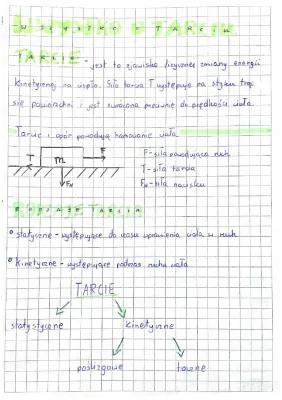 WSZYSTKO O TARCIU
TARCIE - jest to zjawisko fizyczne zmiany energii
kinetycznej na ciepło. Siła tarcia T występuje na styku trąc
się powierzchni i jest zwrócona przeciwnie do prędkości ciała.
Tarcie i opór powodują hamowanie ciała
F - siła powodująca ruch
T m F
T - siła tarcia
FN FN - siła nacisku
RODZAJE TARCIA
• statyczne - występujące do czasu wprawienia ciała w ruch
• kinetyczne - występujące podczas ruchu ciała
TARCIE
statystyczne kinetyczne
poślizgowe toczne